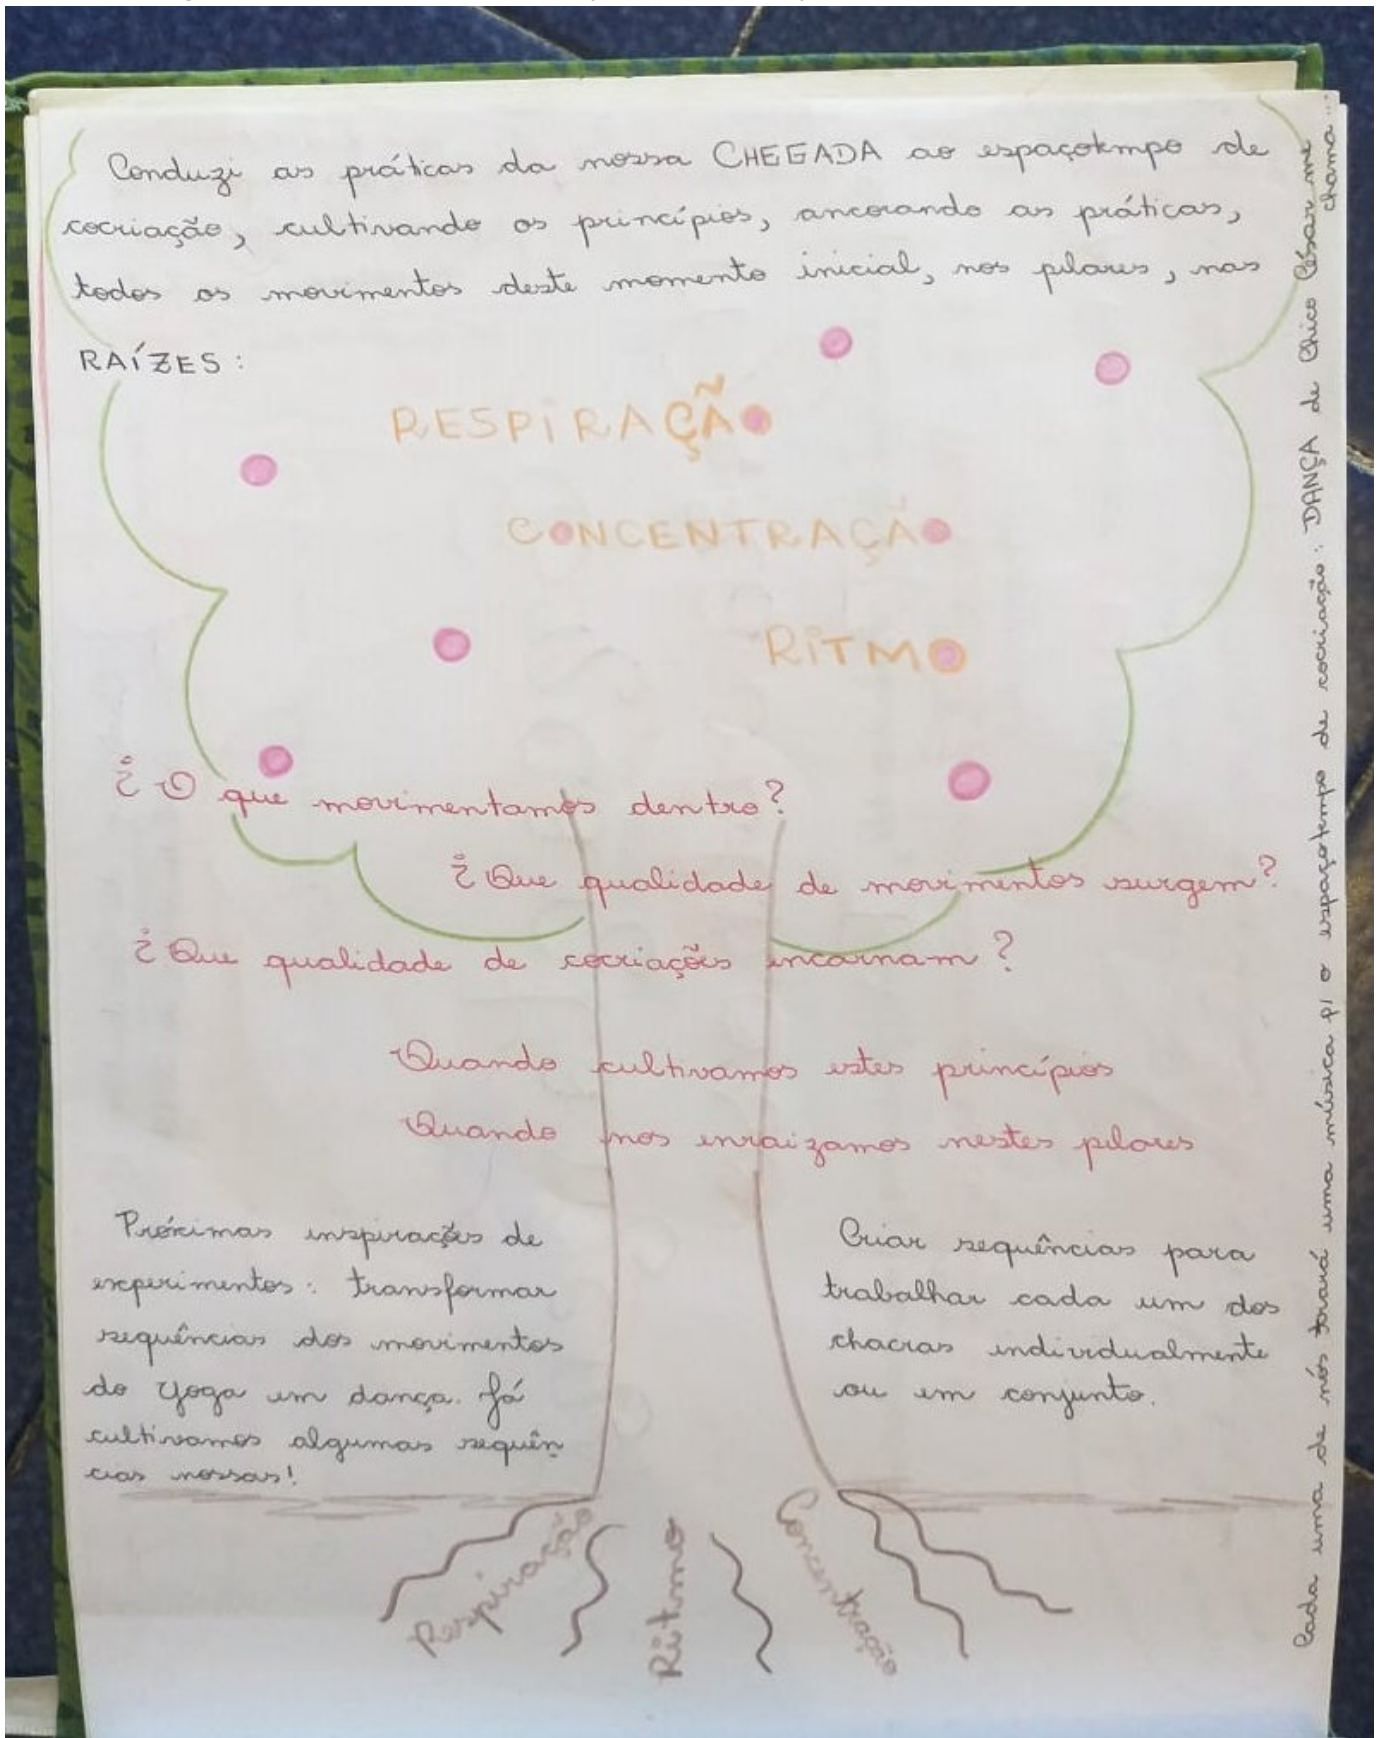 Conduzi as práticas da nossa CHEGADA ao espaçotempo de
cocriação, cultivando os princípios, ancorando as práticas,
todos os movimentos deste momento inicial, nos pilares, nas
RAÍZES:
RESPIRAÇÃO
CONCENTRAÇÃO
RITMO
¿ O que movimentamos dentro?
¿ Que qualidade de movimentos surgem?
¿ Que qualidade de cocriações encarnam?
Quando cultivamos estes princípios
Quando nos enraizamos nestes pilares
Próximas inspirações de
experimentos: transformar
sequências dos movimentos
do yoga em dança. Já
cultivamos algumas sequên
cias nossas!
Criar sequências para
trabalhar cada um dos
chacras individualmente
ou em conjunto.
Respiração
Ritmo
Concentração
Cada uma de nós trará uma música p/ o espaçotempo de cocriação: DANÇA de Chico César me
chama...